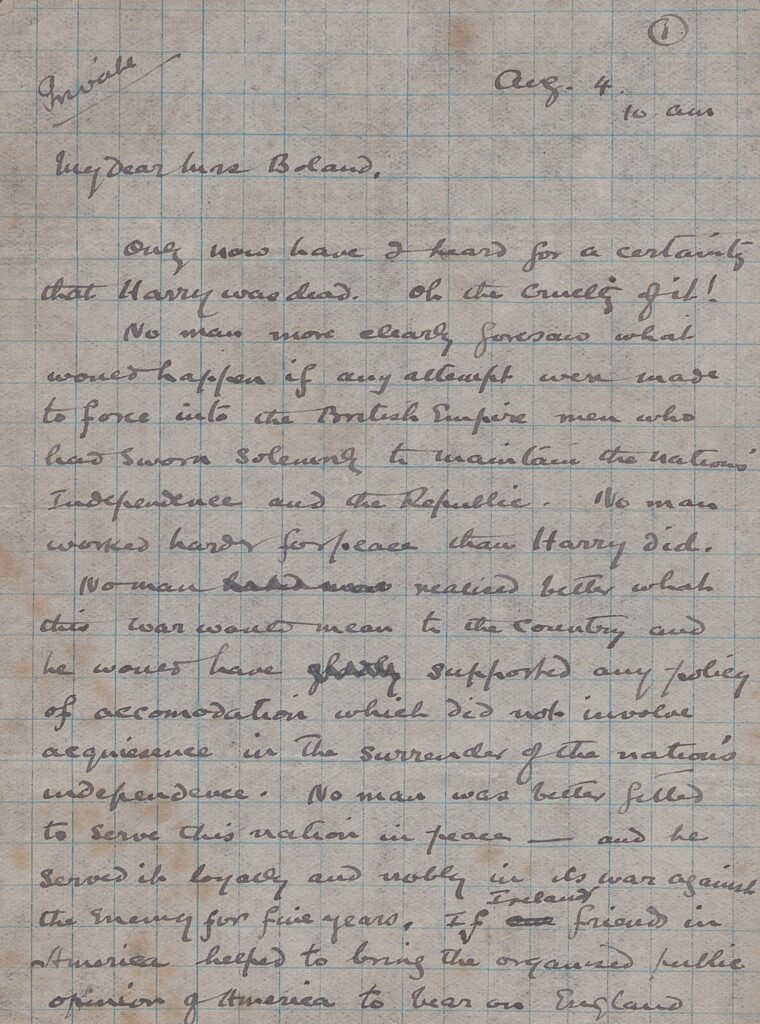 1
Private
Aug. 4.
10 am
My Dear Mrs Boland.
Only now have I heard for a certainty
that Harry was dead. Oh the cruelty of it!
No man more clearly foresaw what
would happen if any attempt were made
to force into the British Empire men who
had sworn solemnly to maintain the nations'
Independence and the Republic. No man
worked harder for peace than Harry did.
No man realised better what
this war would mean to the country and
he would have gladly supported any policy
of accomodation which did not involve
acquiesence in the surrender of the nation's
independence. No man was better fitted
to serve this nation in peace — and he
served it loyally and nobly in its war against
the Enemy for five years. If Ireland friends in
America helped to bring the organised public
opinion of America to bear on England